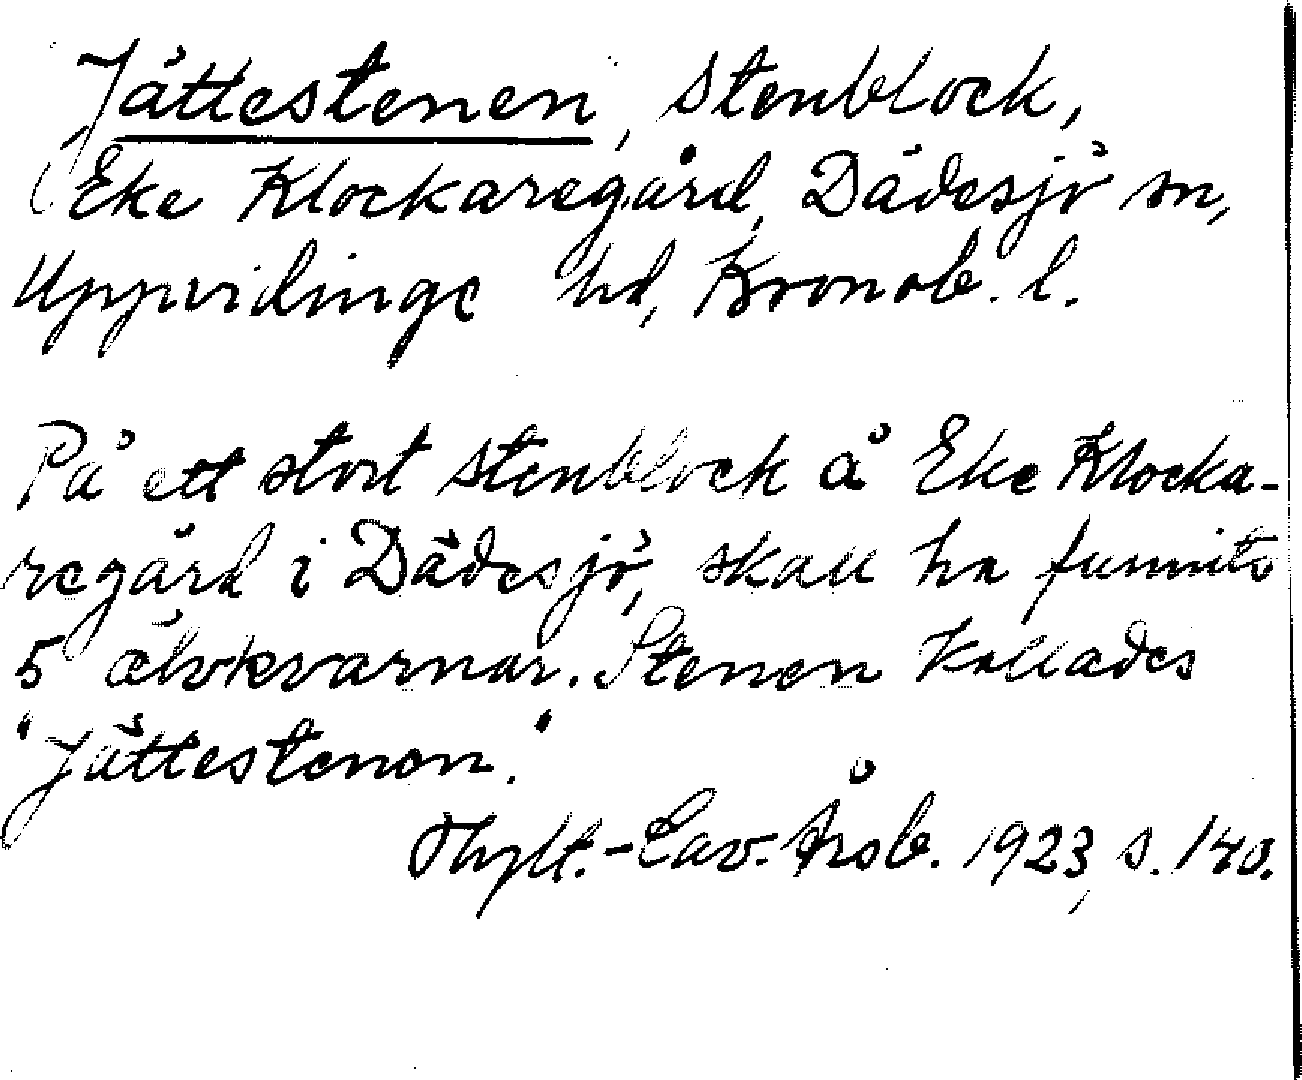 Jättestenen, stenblock,
Eke Klockaregård, Dädesjö sn,
Uppvidinge hd, Kronob. l.
På ett stort stenblock å Eke Klocka-
regård i Dädesjö, skall ha funnits
5 älvkvarnar. Stenen kallades
"Jättestenen."
Hylt.-Cav. Årsb. 1923, s. 140.